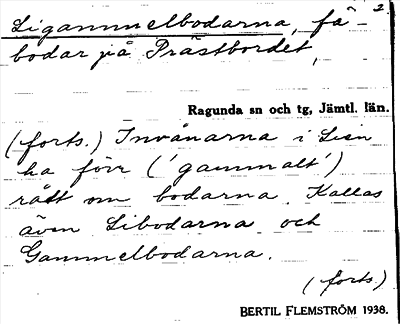 2.
Ligammelbodarna, fä-
bodar på Prästbordet,
Ragunda sn och tg, Jämtl. län.
(forts.) Invånarna i Lien
ha förr ('gammalt')
rått om bodarna. Kallas
även Libodarna och
Gammelbodarna.
(forts.)
BERTIL FLEMSTRÖM 1938.